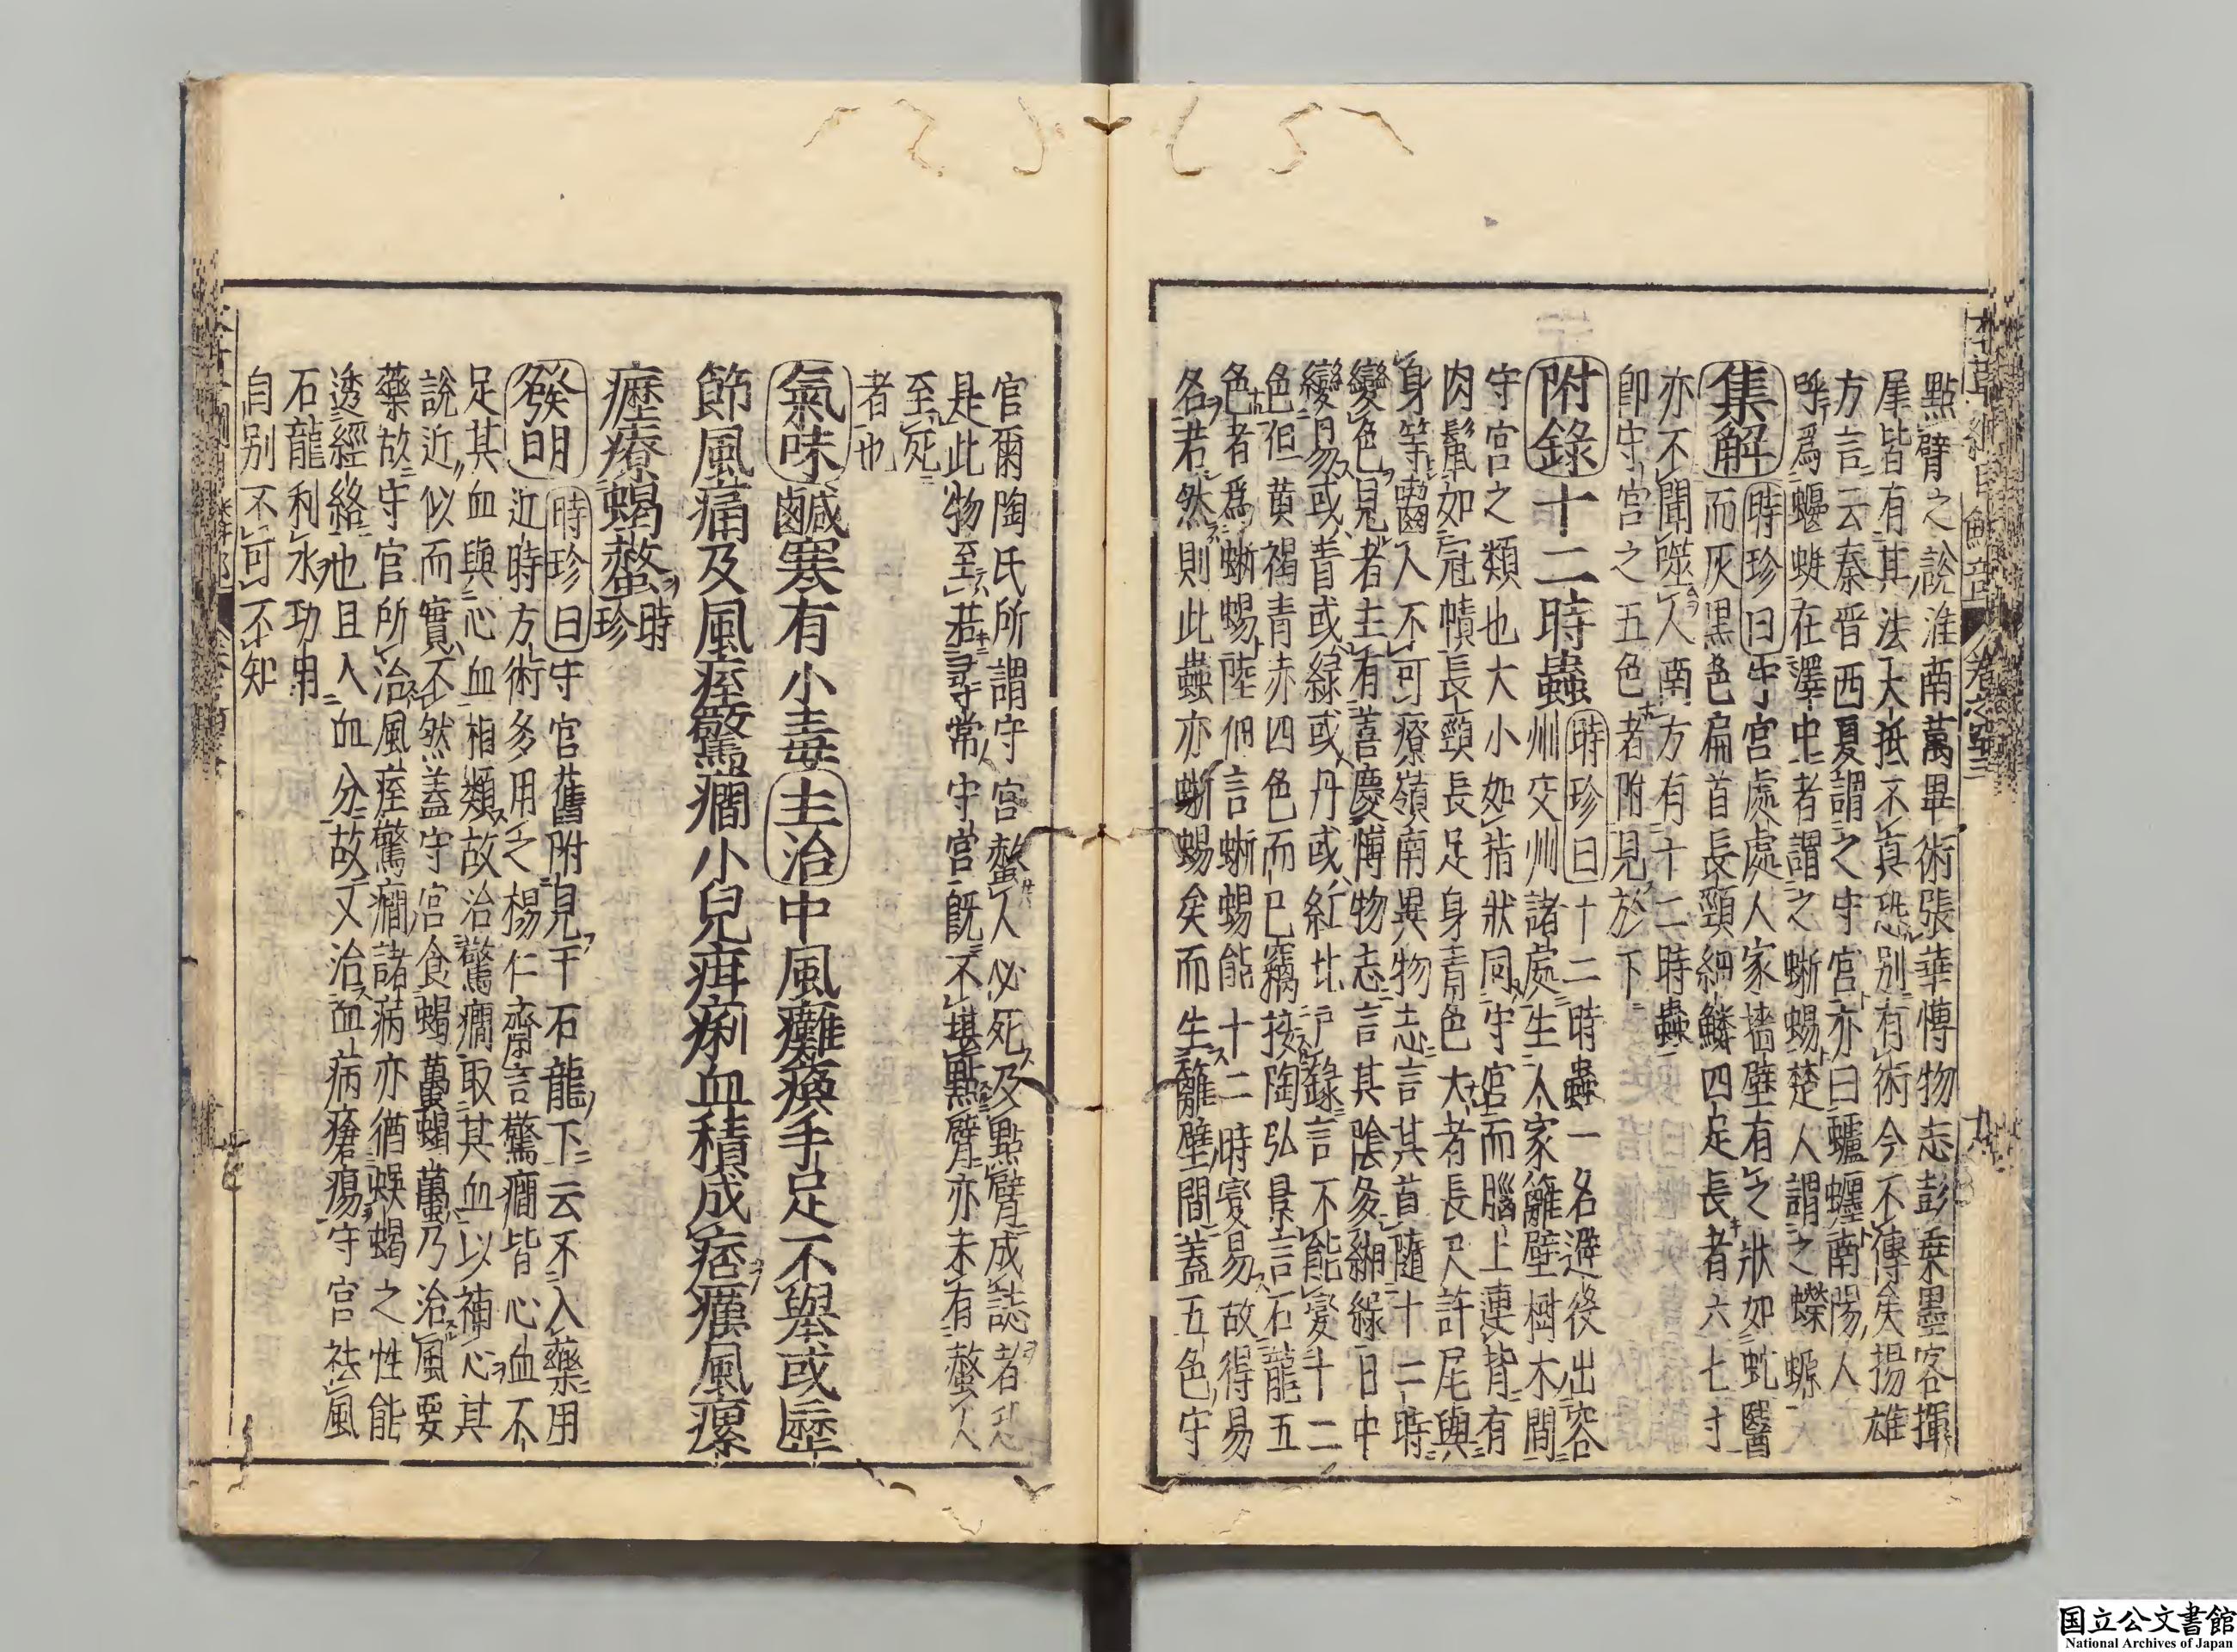 點臂之說淮南萬畢術張華博物志彭乘墨客揮
犀皆有其法大抵不真恐別有術今不傳矣揚雄
方言云秦晉西夏謂之守宮亦曰蠦𧔞南陽人
呼爲蝘蜓在澤中者謂之蜥蜴楚人謂之蠑螈
集解 時珍曰守宮處處人家墻壁有之狀如蛇醫
而灰黑色扁首長頸細鱗四足長者六七寸
亦不聞噬人南方有十二時蟲
即守宮之五色者附見於下
附錄十二時蟲 時珍曰十二時蟲一名避役出容
州交州諸處生人家籬壁樹木間
守宮之類也大小如指狀同守宮而腦上連背有
肉鬣如冠幘長頸長足身青色大者長尺許尾與
身等嚙人不可療嶺南異物志言其首隨十二時
變色見者主有喜慶博物志言其陰多緗綠日中
變易或青或綠或丹或紅北戶錄言不能變十二
色但黃褐青赤四色而已竊按陶弘景言石龍五
色者爲蜥蜴陸佃言蜥蜴能十二時變易故得易
名若然則此蟲亦蜥蜴矣而生籬壁間蓋五色守
宮爾陶氏所謂守宮螫人必死及點臂成誌者恐
是此物至若尋常守宮既不堪點臂亦未有螫人
至死
者也
氣味鹹寒有小毒主治中風癱瘓手足不舉或歷
節風痛及風痓驚癇小兒疳痢血積成痞癘風瘰
癧療蝎螫時珍
發明 時珍曰守宮舊附見于石龍下云不入藥用
近時方術多用之楊仁齋言驚癇皆心血不
足其血與心血相類故治驚癇取其血以補心其
說近似而實不然蓋守宮食蝎蠆蝎蠆乃治風要
藥故守宮所治風痓驚癇諸病亦猶蜈蝎之性能
透經絡也且入血分故又治血病瘡瘍守宮祛風
石龍利水功用
自別不可不知
国立公文書館
National Archives of Japan